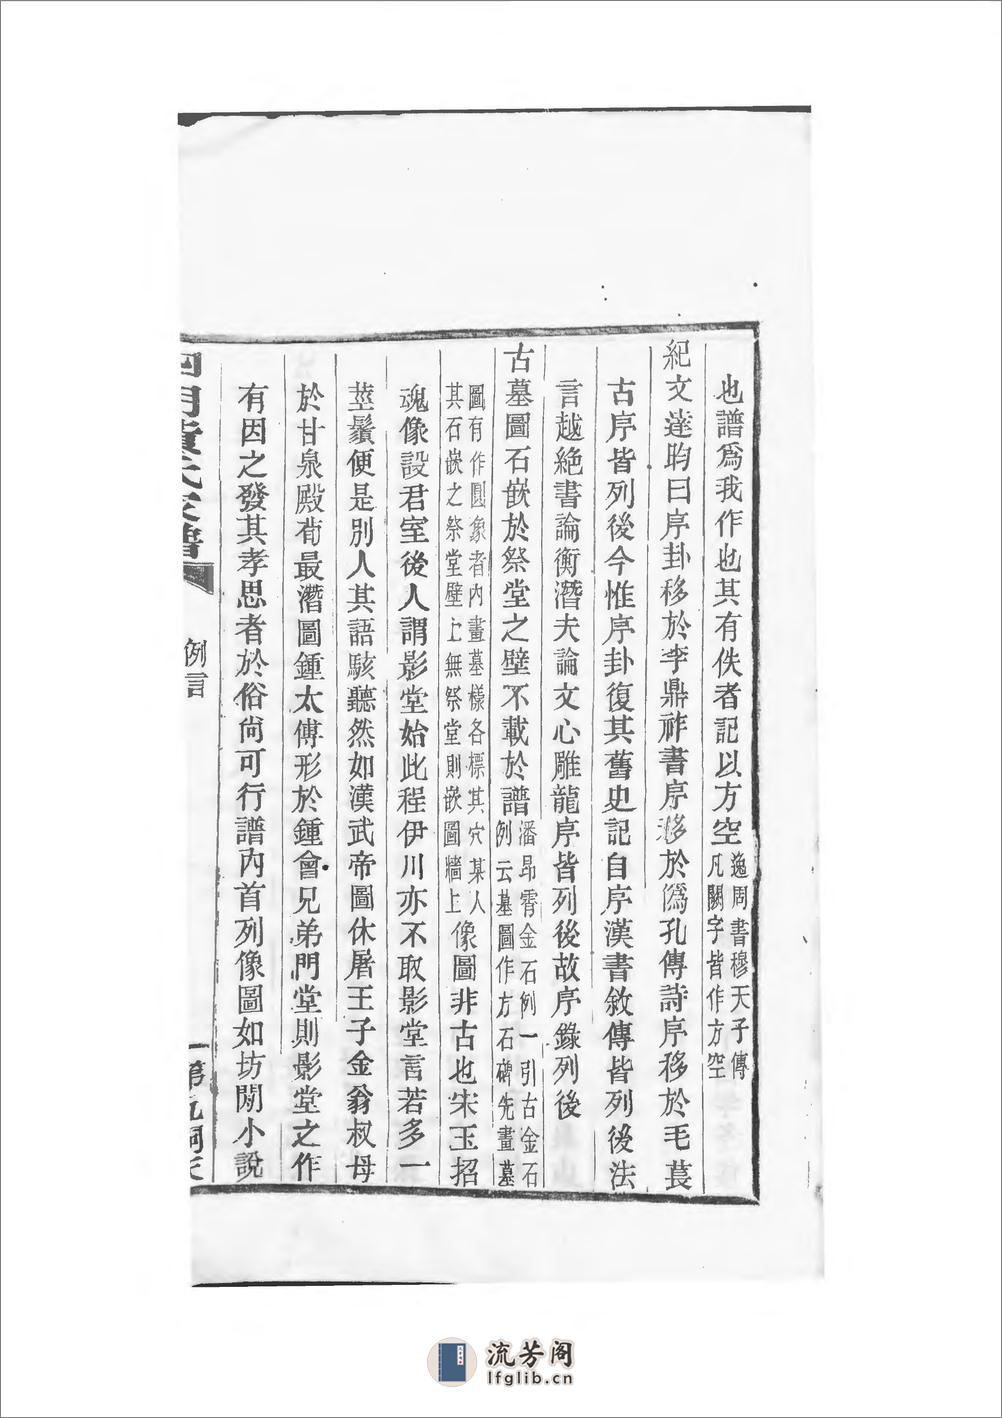 也譜爲我作也其有佚者記以方空逸周書穆天子傳凡闕字皆作方空
紀文達昀曰序卦移於李鼎祚書序移於僞孔傳詩序移於毛萇
古序皆列後今惟序卦復其舊史記自序漢書敘傳皆列後法
言越絶書論衡潛夫論文心雕龍序皆列後故序錄列後
古墓圖石嵌於祭堂之壁不載於譜潘昂霄金石例一引古金石例云墓圖作方石碑先畫墓
圖有作圓象者內畫墓樣各標其穴某人其石嵌之祭堂壁上無祭堂則嵌圖牆上像圖非古也宋玉招
魂像設君室後人謂影堂始此程伊川亦不取影堂言若多一
莖鬚便是別人其語駭聽然如漢武帝圖休屠王子金翁叔母
於甘泉殿荀最潛圖鍾太傅形於鍾會兄弟門堂則影堂之作
有因之發其孝思者於俗尚可行譜內首列像圖如坊閒小說
四明黄氏家譜
例言
一
第九洞天
流芳阁
lfglib.cn